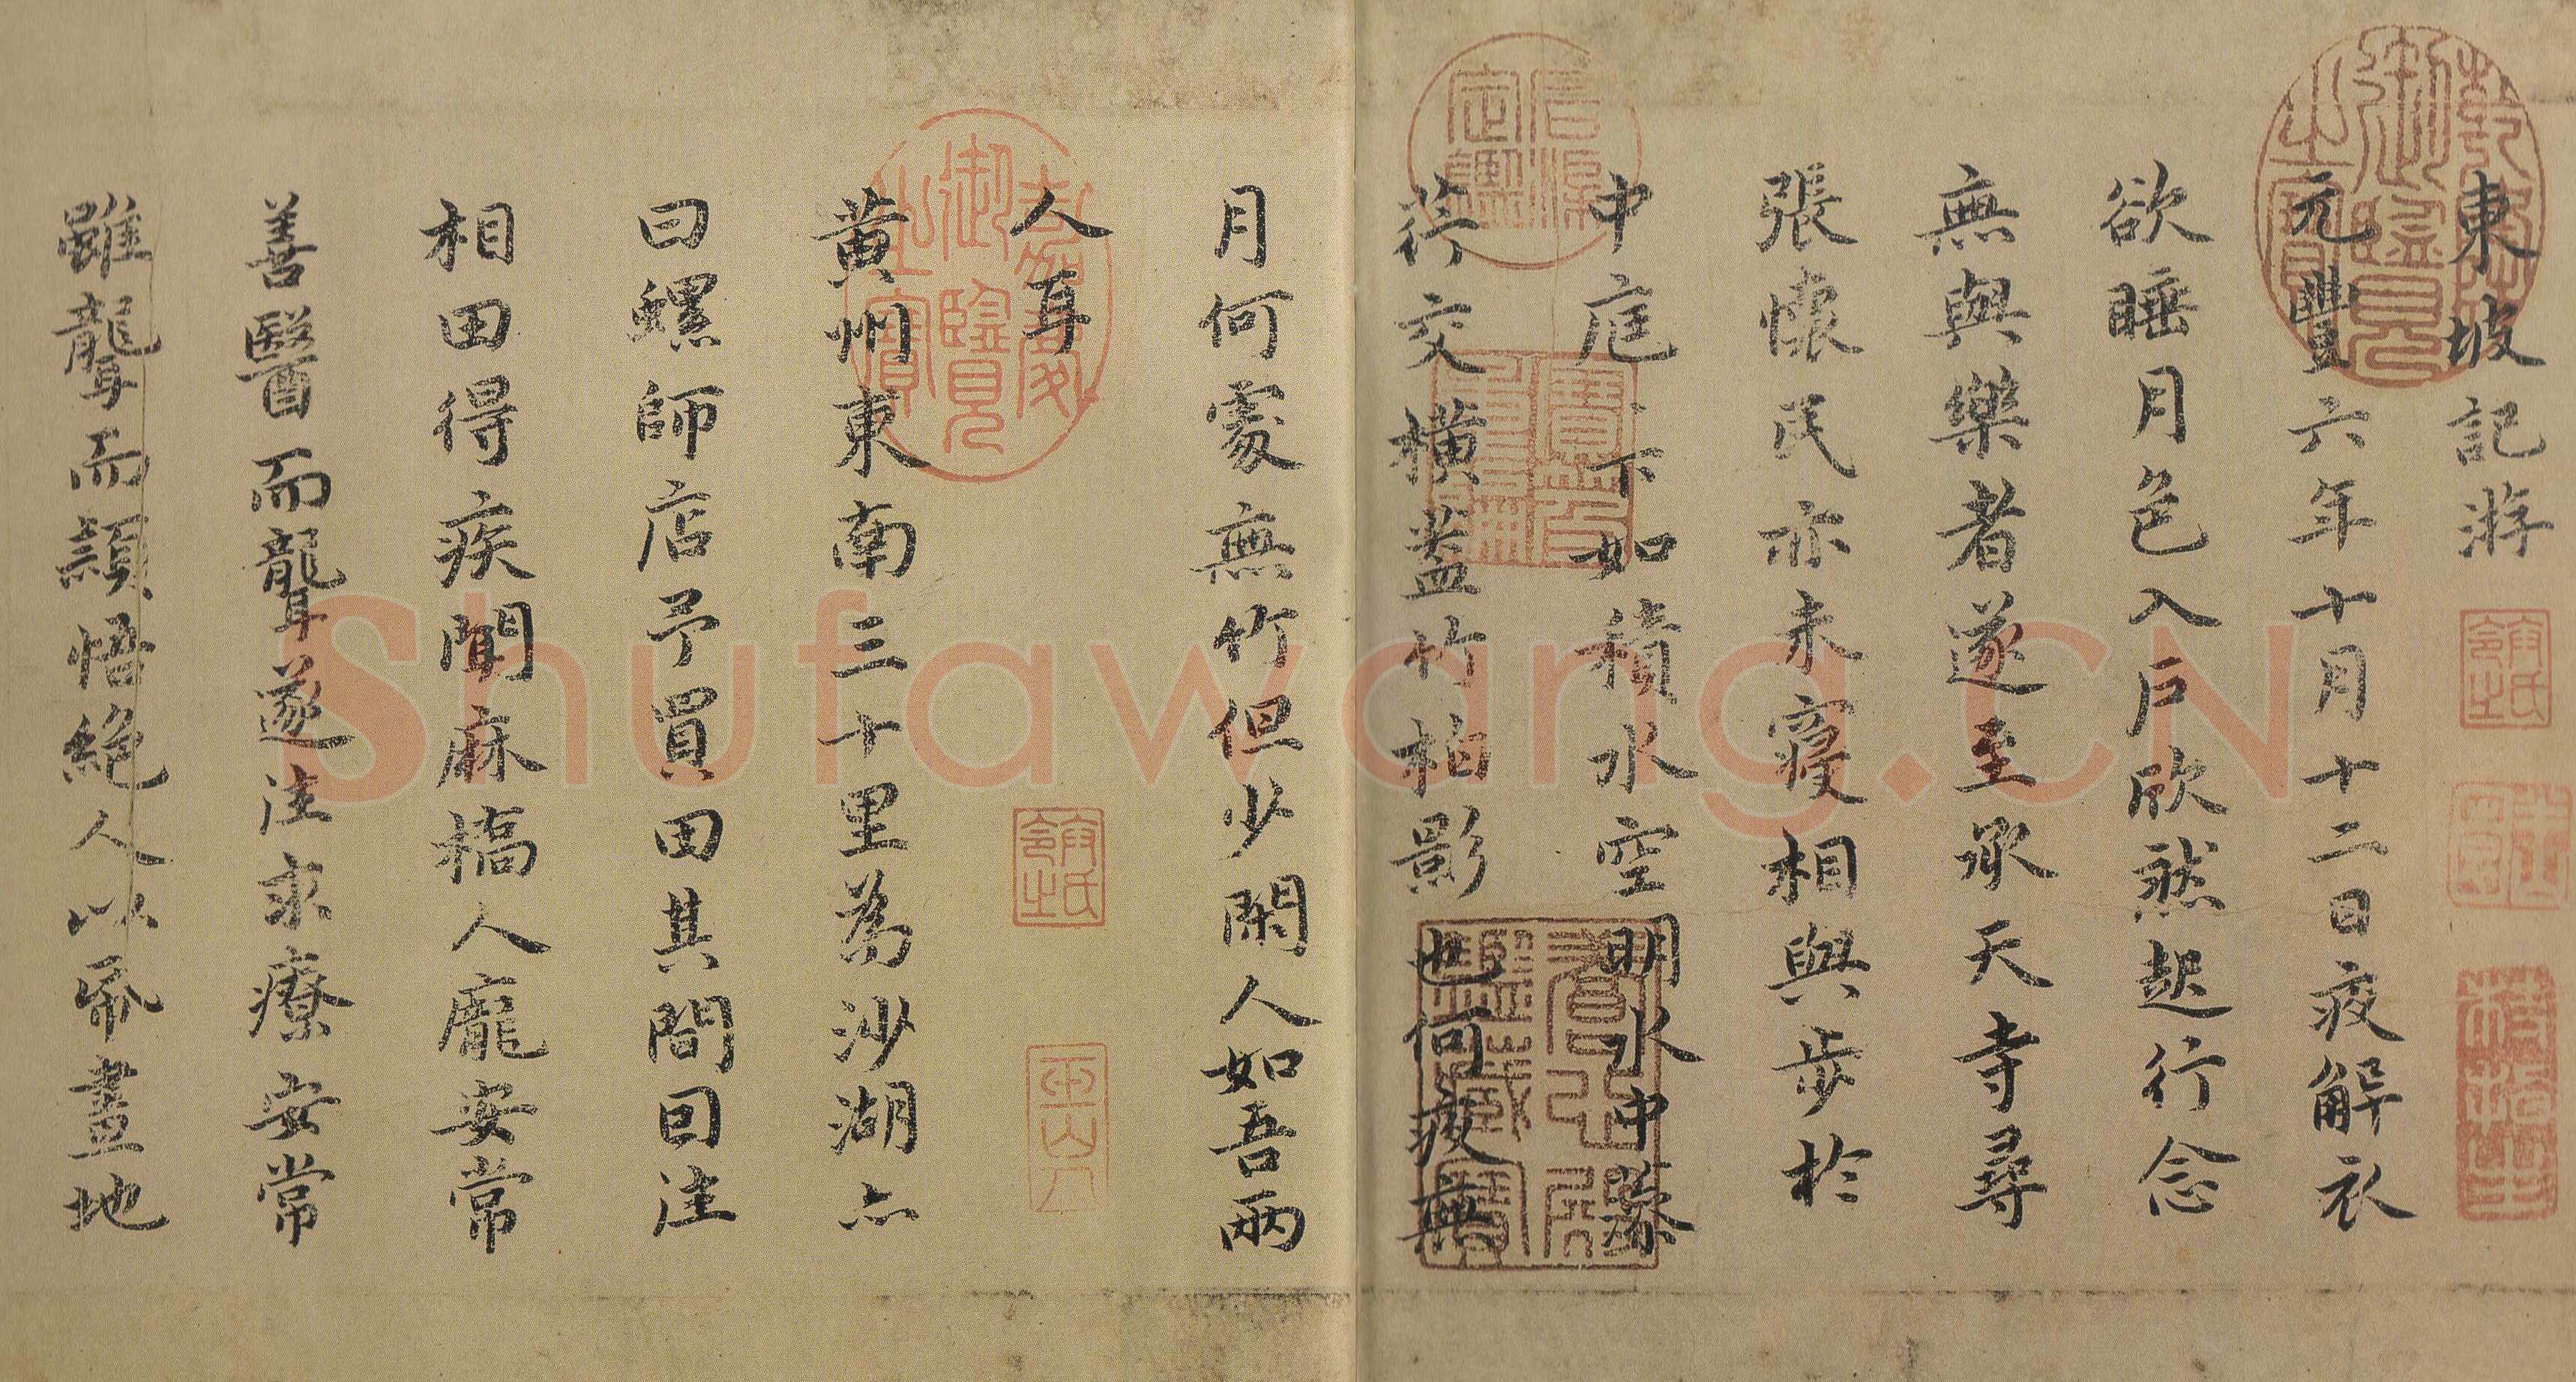 東坡記游
元豐六年十月十二日夜解衣
欲睡月色入戶欣然起行念
無與樂者遂至承天寺尋
張懷民亦未寢相與步於
中庭下如積水空明水中藻
荇交橫蓋竹柏影也何夜無
月何處無竹但少閑人如吾兩
人耳
黃州東南三十里為沙湖亦
曰螺師店予買田其間因往
相田得疾聞麻橋人龐安常
善醫而聾遂往求療安常
雖聾而穎悟絕人以紙畫地
乾隆御覽之寶
嘉慶御覽之寶
石渠寶笈
石渠定鑑
寶笈重編
養心殿鑑藏寶
Shufawang.CN